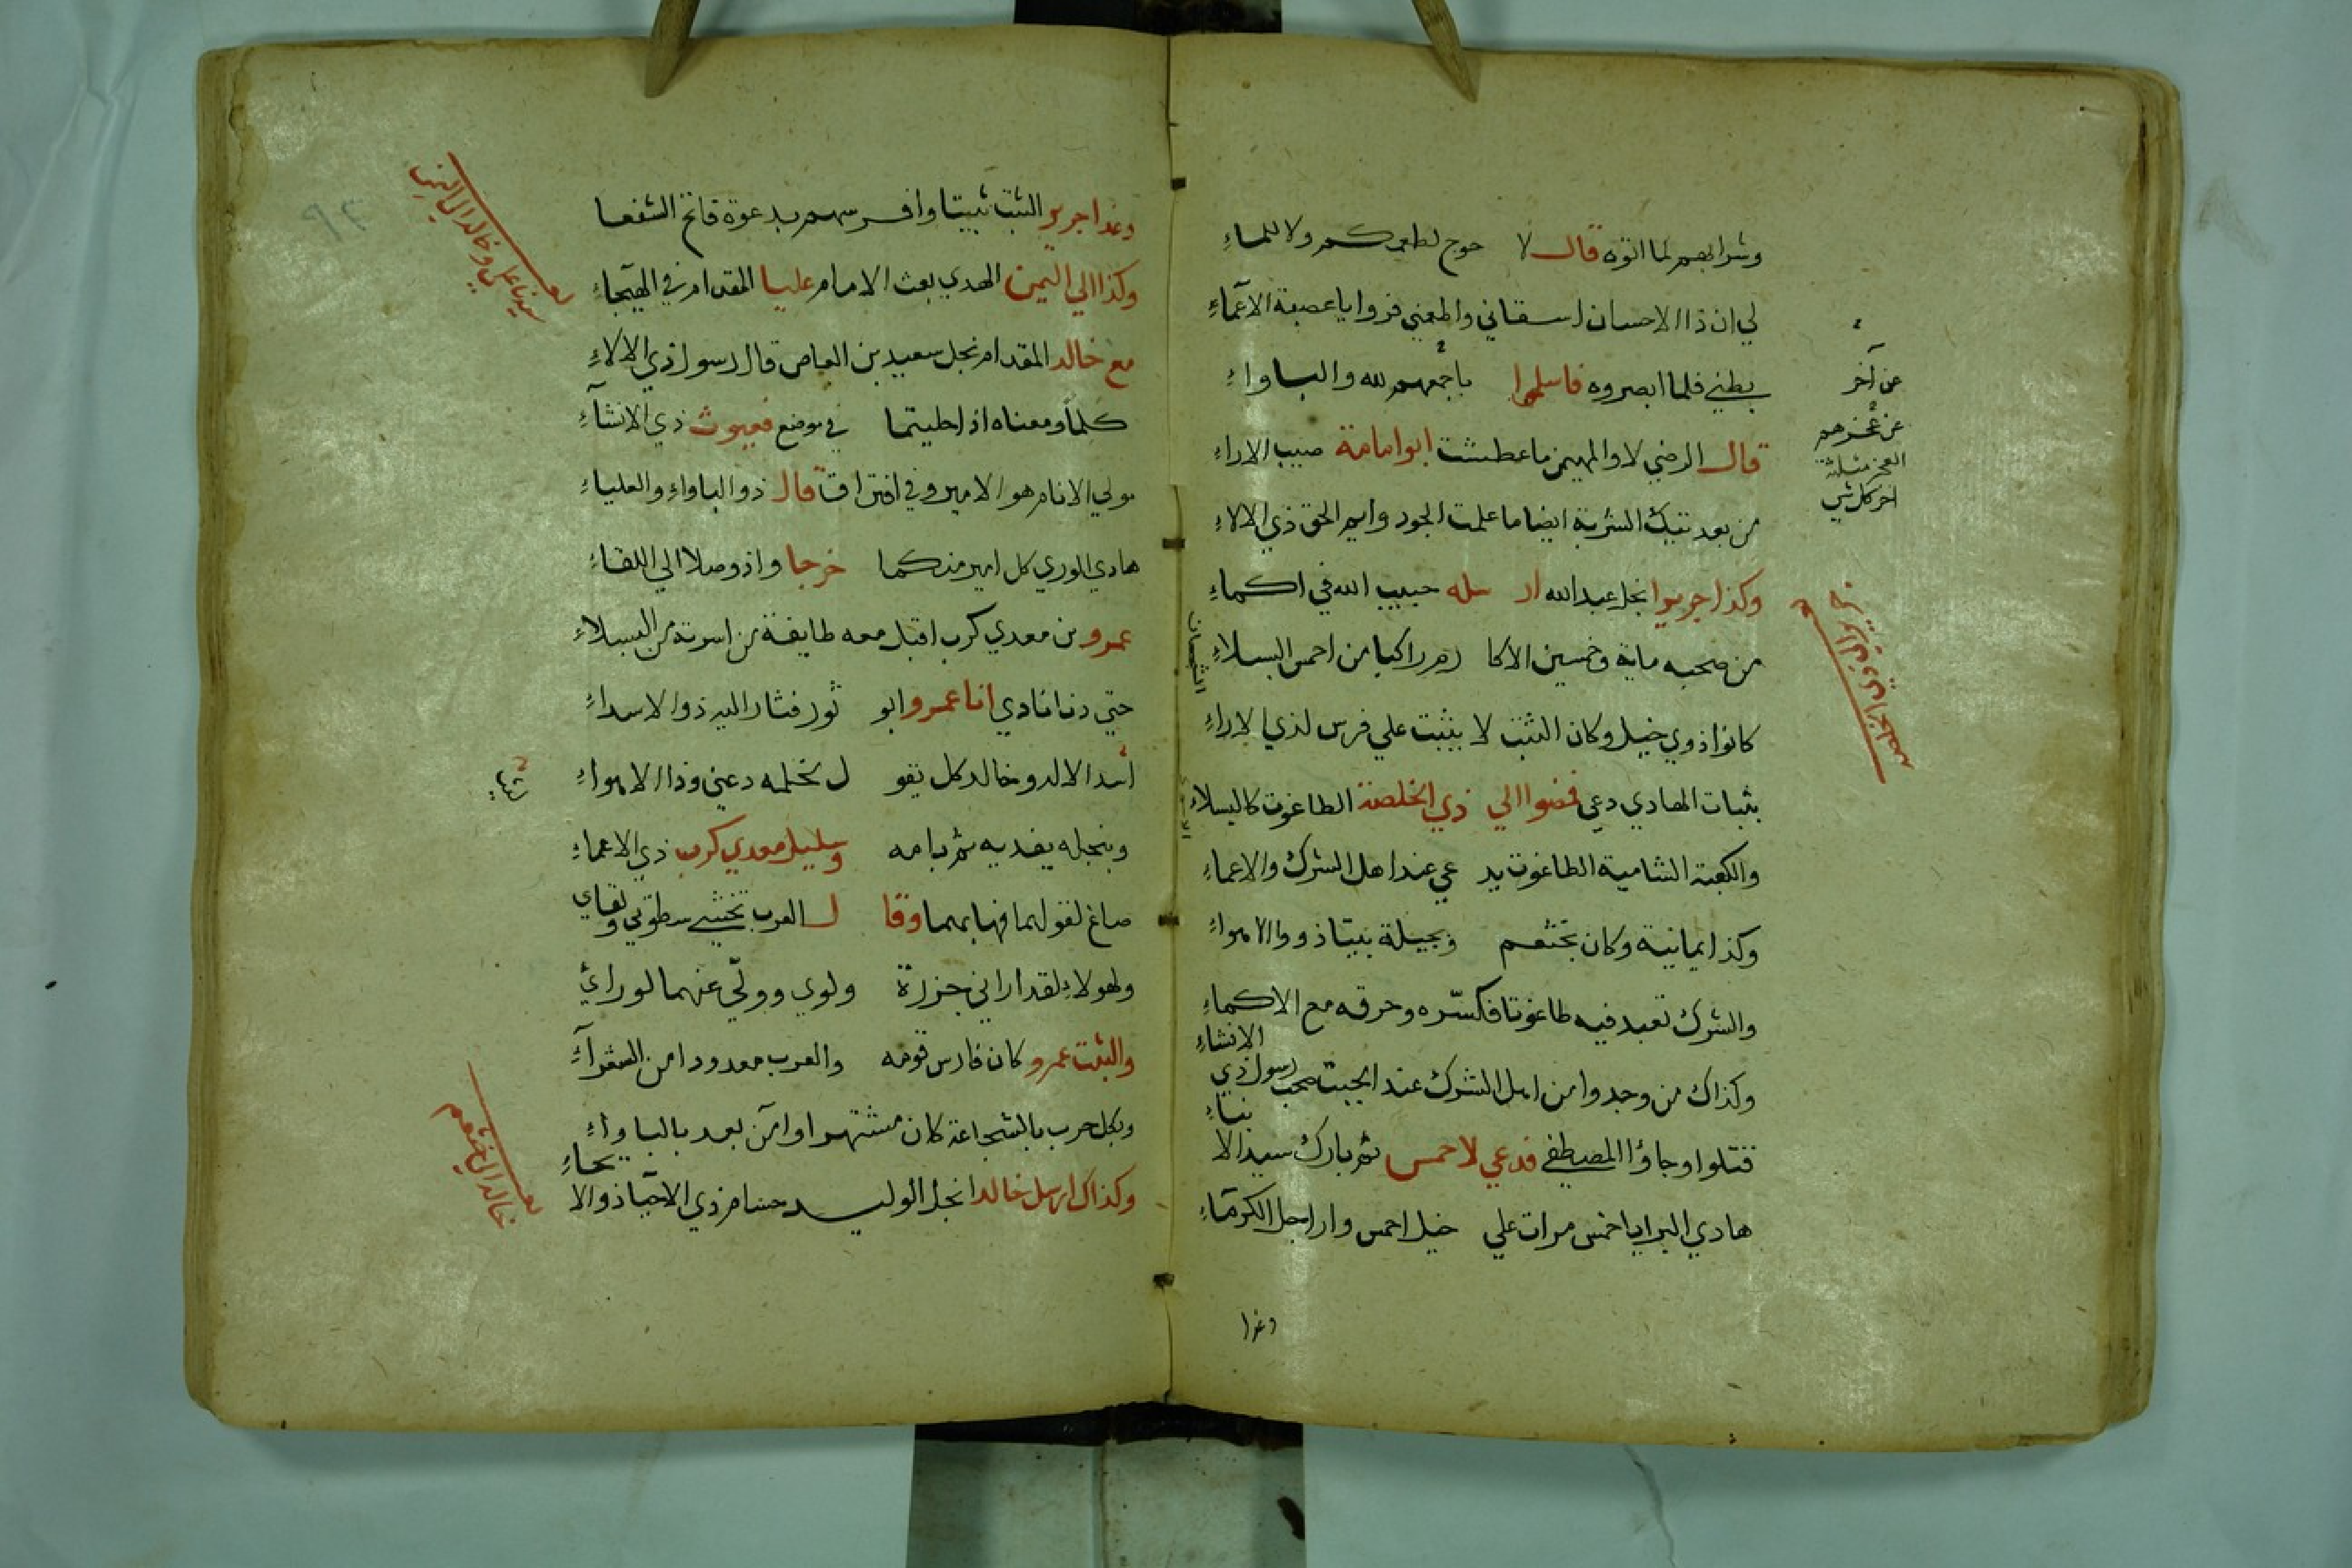 وشرابهم لما اتوه قال لا حوج لطعمكم ولا للماءِ
لي ان ذا الاحسان اسقاني واطعمني فروا يا عصبة الاعماءِ
بطني فلما ابصروه فاسلموا باجمعهم لله والباواءِ
عن آخر
عن عجزهم
العجز مثلثة
اخر كل شي
قال الرضي لا والمهيمن ما عطشت ابو امامة صيب الاراءِ
من بعد تيك الشربة ايضا ما علمت الجود وايم الحق ذي الالاءِ
وكذا جريرا نجل عبد الله ار سله حبيب الله في اكماءِ
من صحبه ماية وخمسين الاكا رم راكبا من احمس البسلاءِ
الشجعان
كانوا ذوي خيل وكان الثبت لا يثبت علي فرس لذي الاراءِ
بثبات الهادي دعي فمضوا الي ذي الخلصة الطاغوت كالبسلاءِ
والكعبة الشامية الطاغوت يد عي عند اهل الشرك والاعماءِ
وكذا يمانية وكان بخثعم وبجيلة بيتا ذووا الاهواءِ
والشرك تعبد فيه طاغوتا فكسّره وحرقه مع الاكماءِ
وكذاك من وجدوا من اهل الشرك عند الجبت صحب رسول ذي الانشاءِ
قتلوا وجاؤا المصطفي فدعي لاحمس ثم بارك سيد الا نباءِ
هادي البرايا خمس مرات علي خيل احمس واراجل الكرماءِ
وغدا
وغدا جرير الثبت ثبيتا وافرسهم بدعوة فاتح الشفعا
وكذا الي اليمن الهدي بعث الامام عليا المقدام في الهيجاءِ
سيدنا علي وخالد الي اليمن
مع خالد المقدام نجل سعيد بن العاص قال رسول ذي الالاءِ
كلما ومعناه اذا حليتما في موضع فعيوث ذي الانشآءِ
مولي الانام هو الامير وفي افتراق قال ذو الباواءِ والعلياءِ
هادي الوري كل امير منكما خرجا واذ وصلا الي اللقاءِ
عمرو بن معدي كرب اقبل معه طايفة من اسرته من البسلاءِ
حتي دنا نادي انا عمرو ابو ثور فثار اليه ذو الاسداءِ
اسد الاله وخالد كل يقو ل لخله دعني وذا الاهواءِ
وبنجله يفديه ثم بامه وسليل معدي كرب ذي الاعماءِ
صاغ لقولهما فها بهما وقا ل العرب تخشي سطوتي ولقاي
ولهولاءِ لقد اراني جزرة ولوي وولّي عنهما لورائ
والثبت عمرو كان فارس قومه والعرب معدودا من الشعرآءِ
وبكل حرب بالشجاعة كان مشتهرا وامن بعد بالباواءِ
وكذاك ارسل خالدا نجل الوليد حسام ذي الاحيا ذو الا يحاءِ
خالد الي خثعم